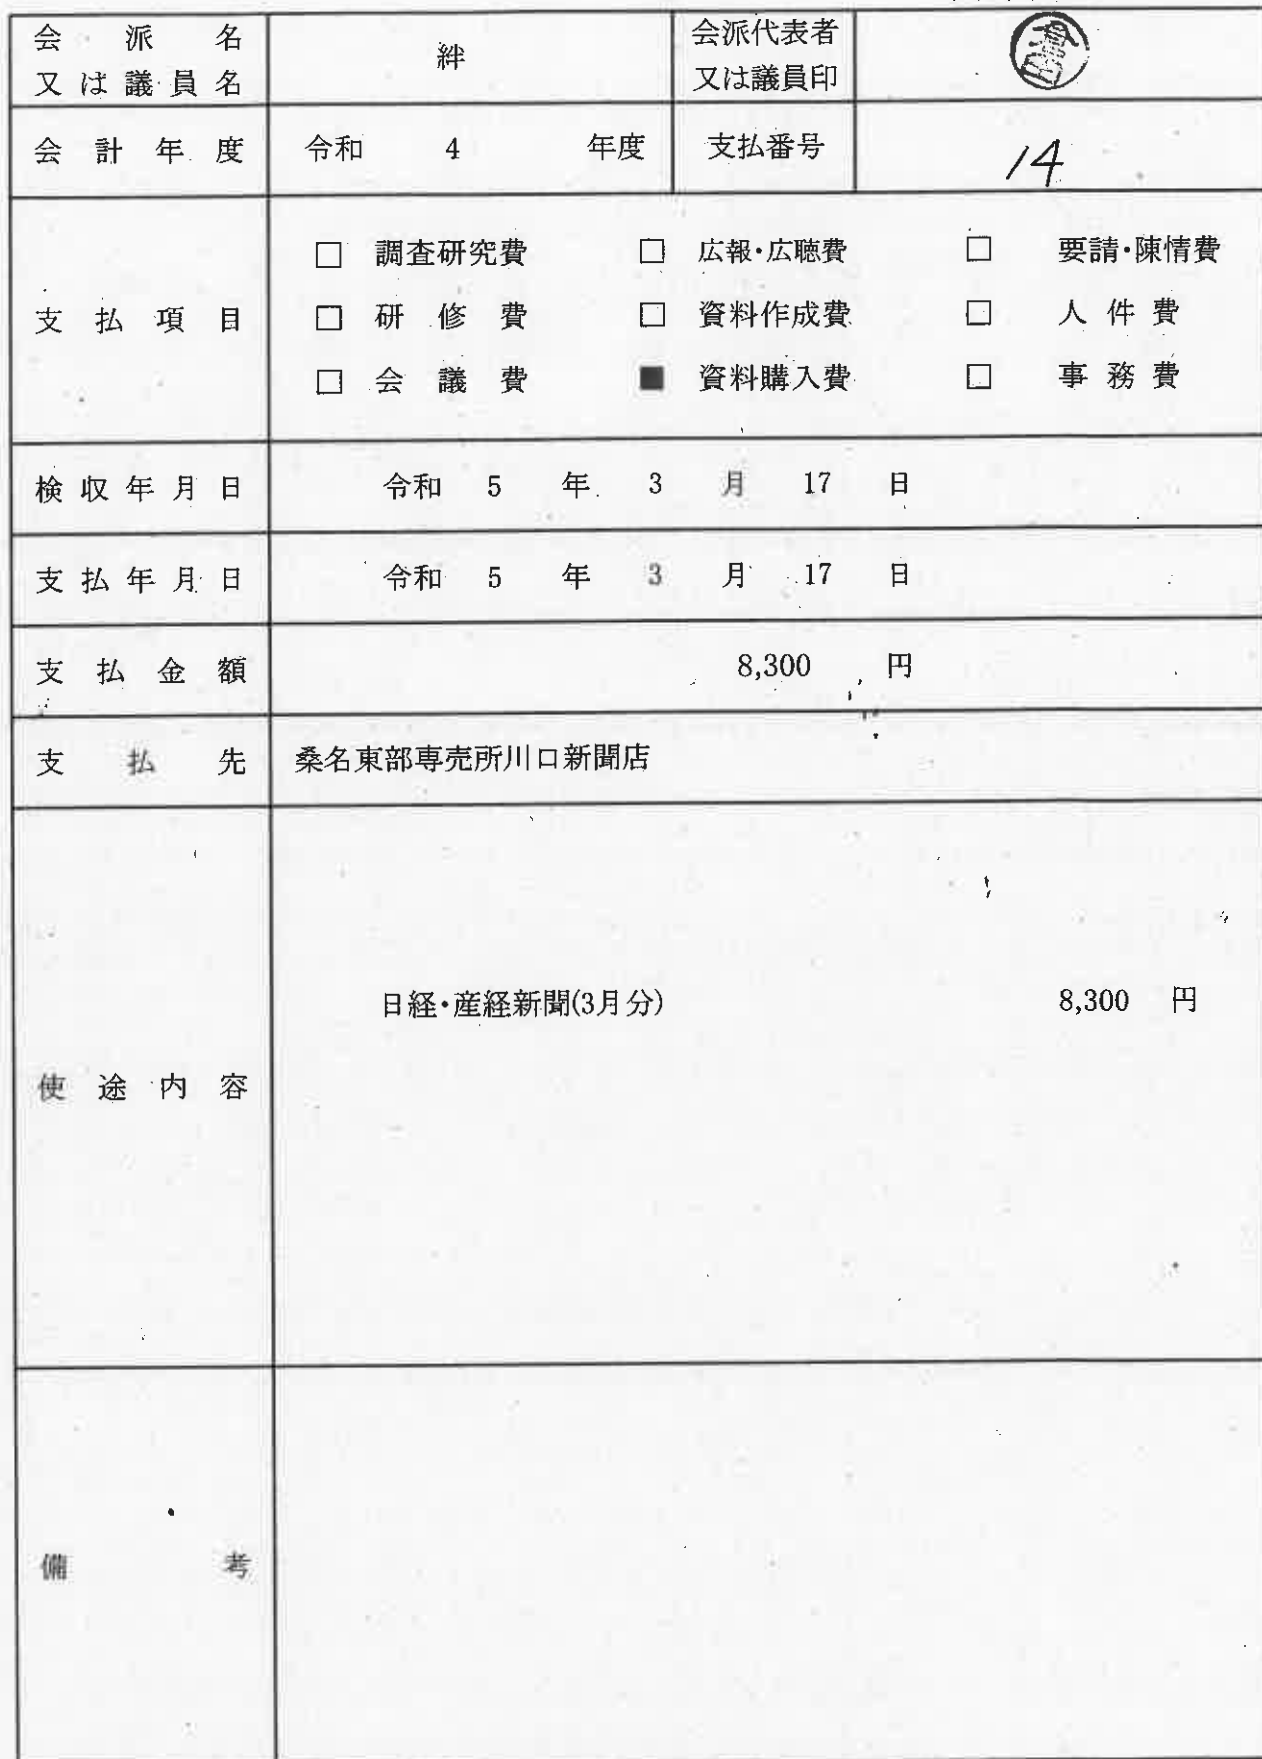 会派名
又は議員名
絆
会派代表者
又は議員印
会計年度
令和 4 年度
支払番号
14
支払項目
□ 調査研究費 □ 広報・広聴費 □ 要請・陳情費
□ 研修費 □ 資料作成費 □ 人件費
□ 会議費 ■ 資料購入費 □ 事務費
検収年月日 令和 5 年 3 月 17 日
支払年月日 令和 5 年 3 月 17 日
支払金額 8,300 円
支払先 桑名東部専売所川口新聞店
使途内容
日経・産経新聞(3月分) 8,300 円
備考